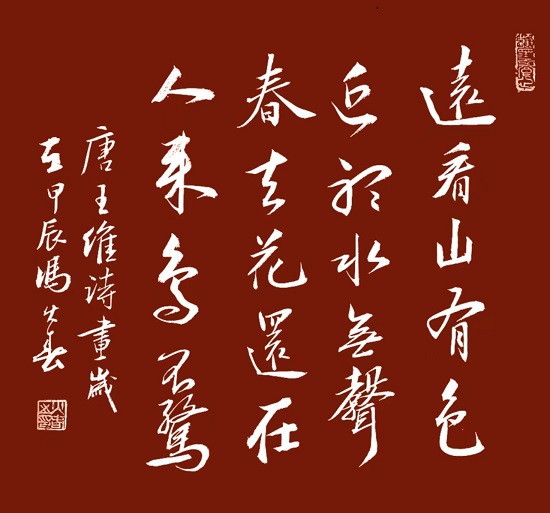 遠看山有色
近聽水無聲
春去花還在
人來鳥不驚
唐王維詩畫歲
在甲辰馮火春